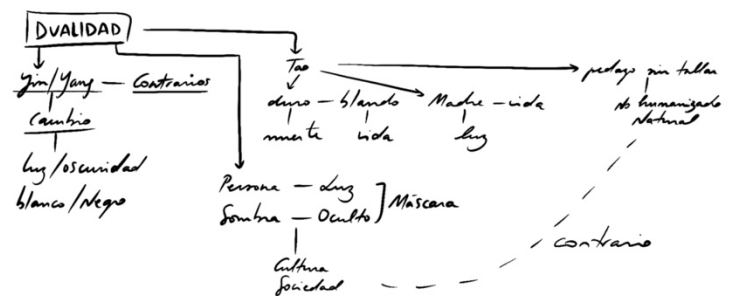 DUALIDAD
Yin/Yang — Contrarios
Cambio
luz/oscuridad
blanco/Negro
Tao
duro — blando
muerte vida
Madre — vida
luz
pedazo sin tallar
No humanizado
Natural
Persona — Luz
Sombra — Oculto
Máscara
Cultura
Sociedad
contrario